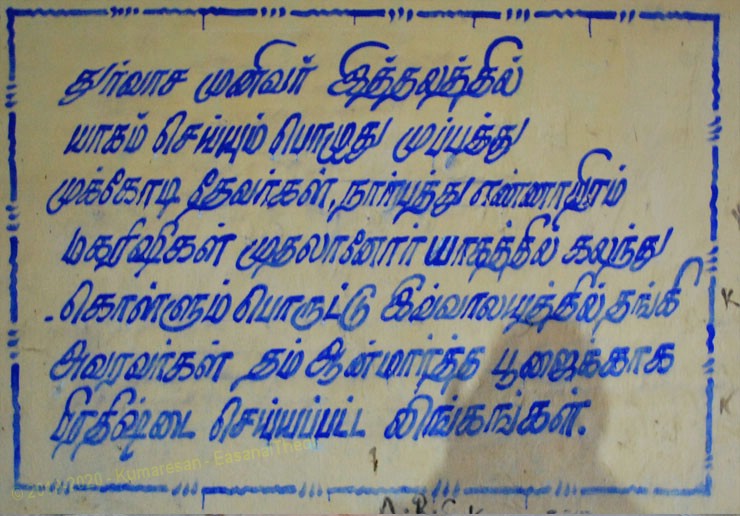 துர்வாச முனிவர் இத்தலத்தில்
யாகம் செய்யும் பொழுது முப்பத்து
முக்கோடி தேவர்கள், நாற்பத்து எண்ணாயிரம்
மகரிஷிகள் முதலானோர் யாகத்தில் கலந்து
கொள்ளும் பொருட்டு இவ்வாலயத்தில் தங்கி
அவரவர்கள் தம் ஆன்மார்த்த பூஜைக்காக
பிரதிஷ்டை செய்யப்பட்ட லிங்கங்கள்.
Kumaresan - EasanaiThedi